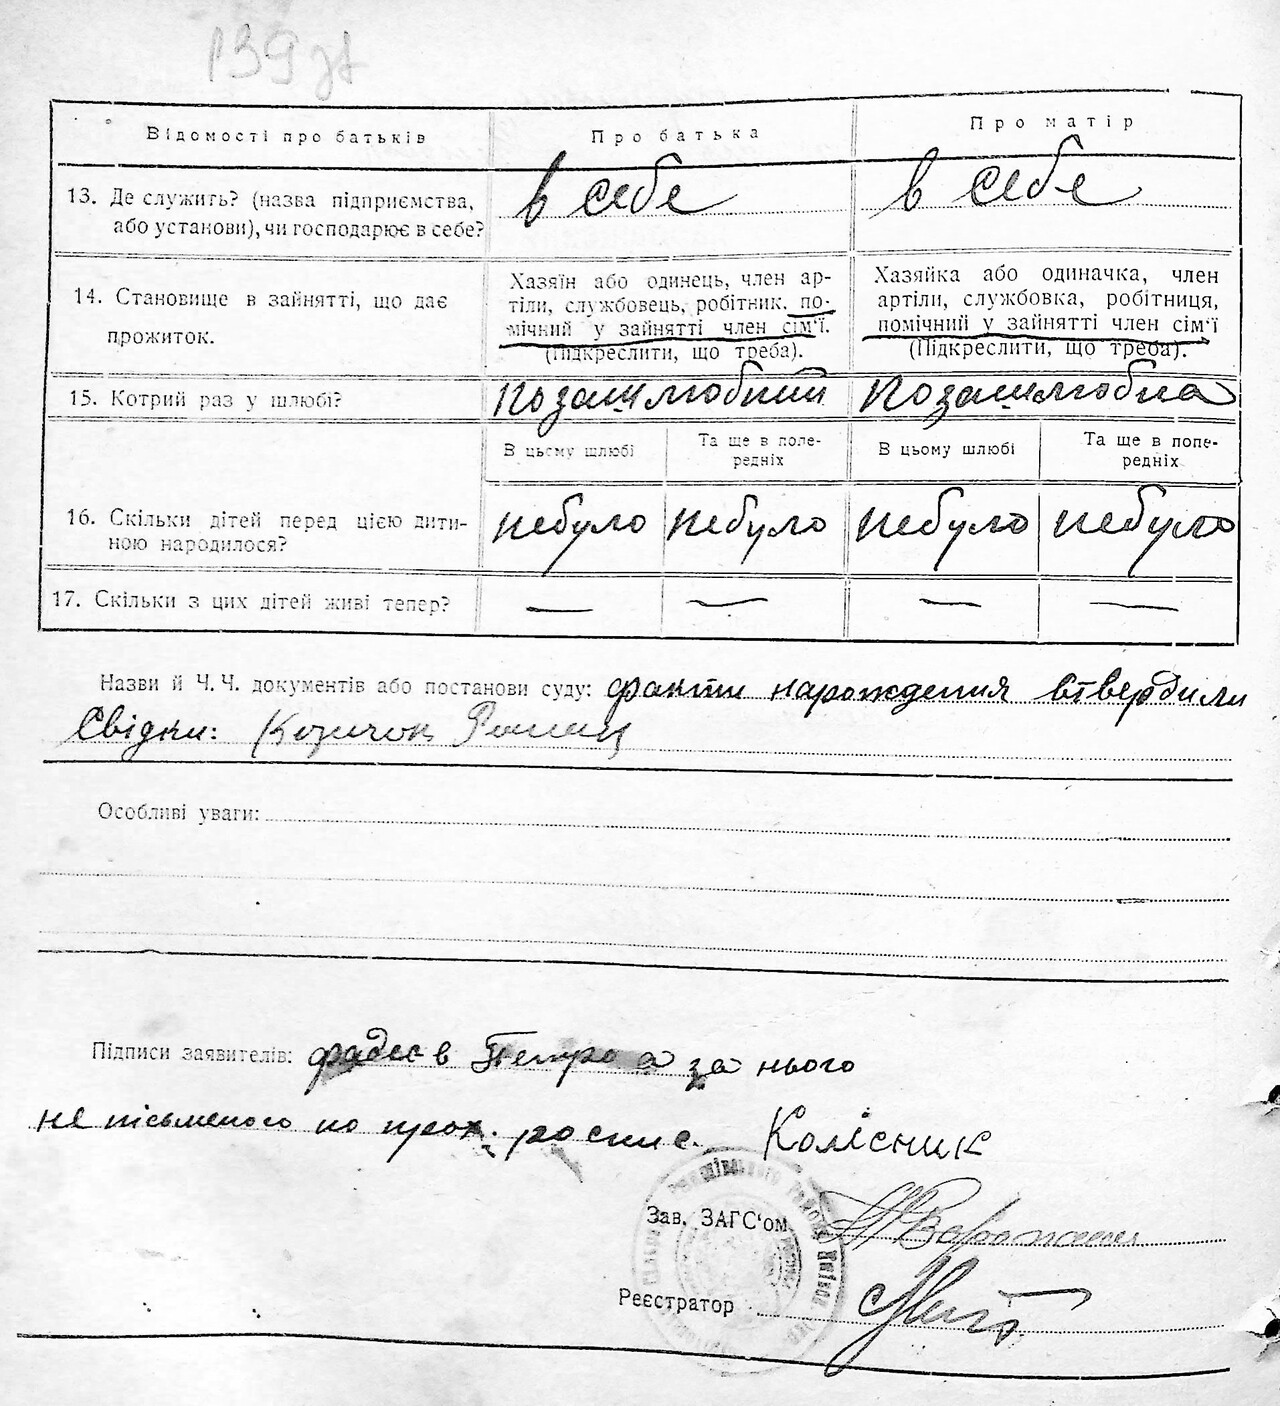 139 зв
Відомості про батьків
Про батька
Про матір
13. Де служить? (назва підприємства,
або установи), чи господарює в себе?
в себе
в себе
14. Становище в зайнятті, що дає
прожиток.
Хазяїн або одинець, член ар-
тіли, службовець, робітник. по-
мічний у зайнятті член сім'ї.
(Підкреслити, що треба).
Хазяйка або одиначка, член
артіли, службовка, робітниця,
помічний у зайнятті член сім'ї
(Підкреслити, що треба).
15. Котрий раз у шлюбі?
позашлюбний
позашлюбна
В цьому шлюбі
Та ще в попе-
редніх
В цьому шлюбі
Та ще в попе-
редніх
16. Скільки дітей перед цією дити-
ною народилося?
небуло
небуло
небуло
небуло
17. Скільки з цих дітей живі тепер?
— — — —
Назви й Ч.Ч. документів або постанови суду: факти нарождения втвердили
Свідки:
Особливі уваги:
Підписи заявителів: фадєєв Петро а за нього
не письменого по прох. роспис. Колісник
Зав. ЗАГС'ом
Реєстратор